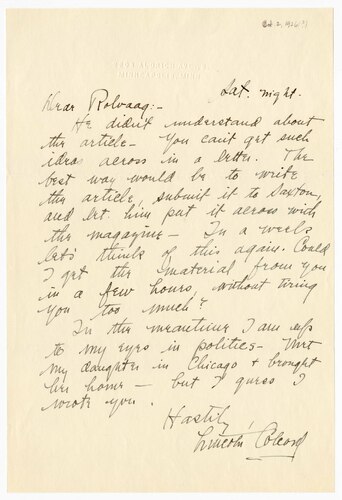 Oct. 2, 1926(?)
Sat. night.
Dear Rolvaag:-
He didn't understand about
the article - You can't get such
ideas across in a letter. The
best way would be to write
the article, submit it to Saxton,
and let him put it across with
the magazine - In a week
let's think of this again. Could
I get the material from you
in a few hours, without tiring
you too much?
In the meantime I am up
to my eyes in politics - Met
my daughter in Chicago + brought
her home - but I guess I
wrote you.
Hastily,
Lincoln Colcord